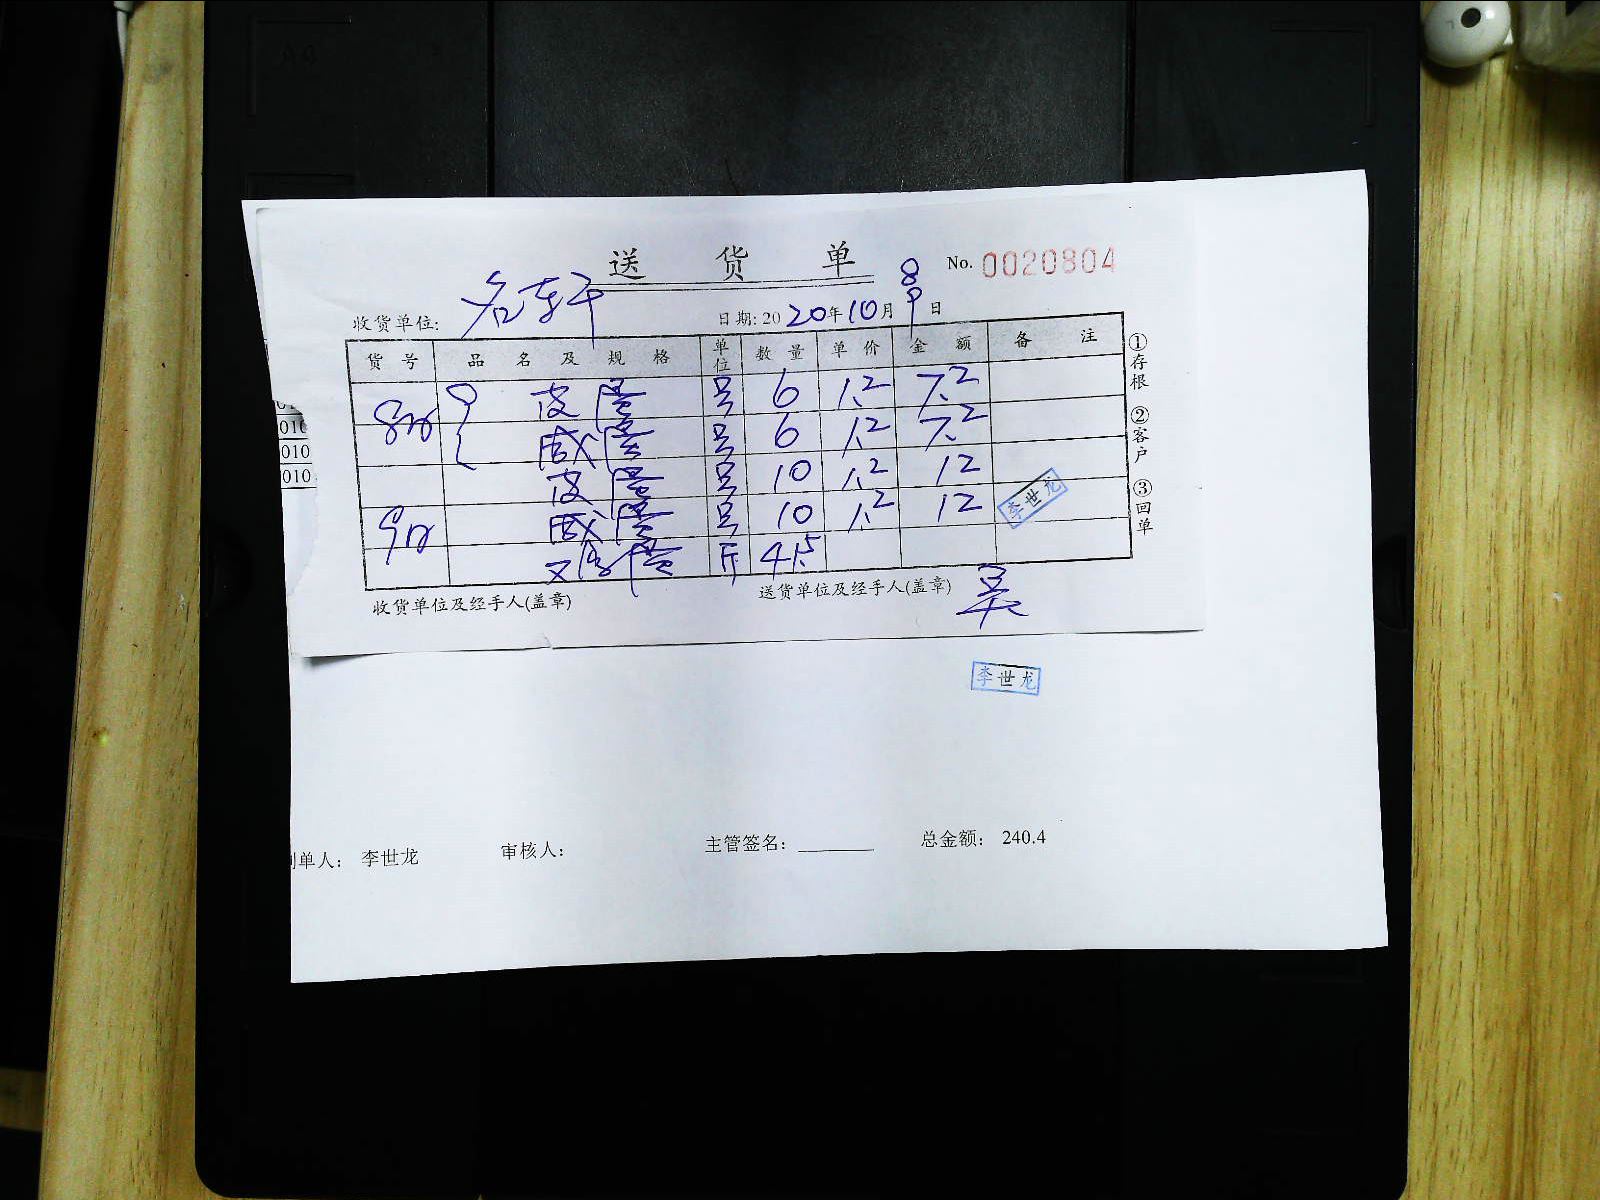 送 货 单
No. 0020804
收货单位:
日期: 2020年10月8日
9
货号 品名及规格 单位 数量 单价 金额 备注
8号 皮蛋 号 6 1.2 7.2
咸蛋 号 6 1.2 7.2
皮蛋 号 10 1.2 12
9号 咸蛋 号 10 1.2 12
蛋 斤 45
李世龙
①存根 ②客户 ③回单
收货单位及经手人(盖章)
送货单位及经手人(盖章) 吴
010
010
010
李世龙
制单人: 李世龙 审核人: 主管签名: 总金额: 240.4